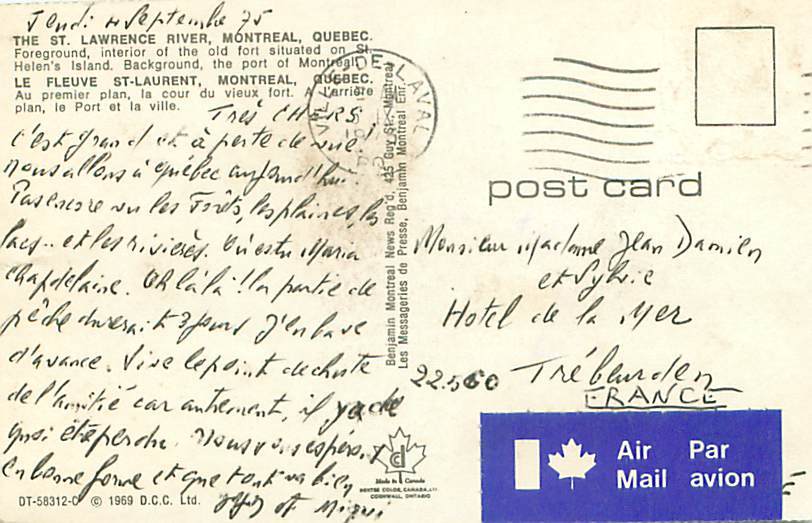 Jeudi 4 Septembre 75
THE ST. LAWRENCE RIVER, MONTREAL, QUEBEC.
Foreground, interior of the old fort situated on St.
Helen's Island. Background, the port of Montreal.
LE FLEUVE ST-LAURENT, MONTREAL, QUEBEC.
Au premier plan, la cour du vieux fort. A l'arrière
plan, le Port et la ville.
Très CHERS
C'est grand et à perte de vue!
Nous allons à québec aujourd'hui.
Pas encore vu les Forêts, les plaines, les
lacs.. et les rivières. Où es tu Maria
chapdelaine. Oh là là! la partie de
pêche durerait 3 jours J'en bave
d'avance. Vive le point de chute
de l'amitié car autrement, il y a de
quoi être perdu. Nous vous espérons
en bonne forme et que tout va bien
et Miqui
DT-58312-C © 1969 D.C.C. Ltd.
VILLE DE LAVAL
Benjamin Montreal News Reg'd, 425 Guy St., Montreal
Les Messageries de Presse, Benjamin Montreal Enr.
post card
Monsieur Madame Jean Damien
et Sylvie
Hotel de la Mer
22560 Trébeurden
FRANCE
Made in Canada
CORNWALL, ONTARIO
Air Par
Mail avion